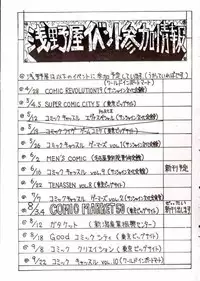 浅野屋イベント参加情報
◎浅野屋は以下のイベントに参加予定しています（うかっていればです）
（ワールドインポートマート）
◎4/28 COMIC REVOLUTION19（サンシャイン文化会館）
◎5/4.5 SUPER COMIC CITY 5（東京ビッグサイト）
◎5/12 コミックキャッスル
◎5/26 コミックキャッスル ゲーマーズ VOL.1（サンシャイン文化会館）
◎6/2 MEN'S COMIC（名古屋市
◎6/16 コミックキャッスル VOL.9（サンシャイン文化会館）
新刊予定
◎6/22 TENASSEN VOL.8（東京ビッグサイト）
◎7/7 コミックキャッスル ゲーマーズ VOL.2（サンシャイン文化会館）
◎8/3.4 COMIC MARKET 50（東京ビッグサイト）
新刊出します
◎8/12 ガタケット（新潟市産業振興センター）
◎8/18 Good コミックシティ（東京ビッグサイト）
◎9/18 コミック クリエイション（東京ビッグサイト）
◎9/22 コミック キャッスル VOL.10（ワールドインポートマート）